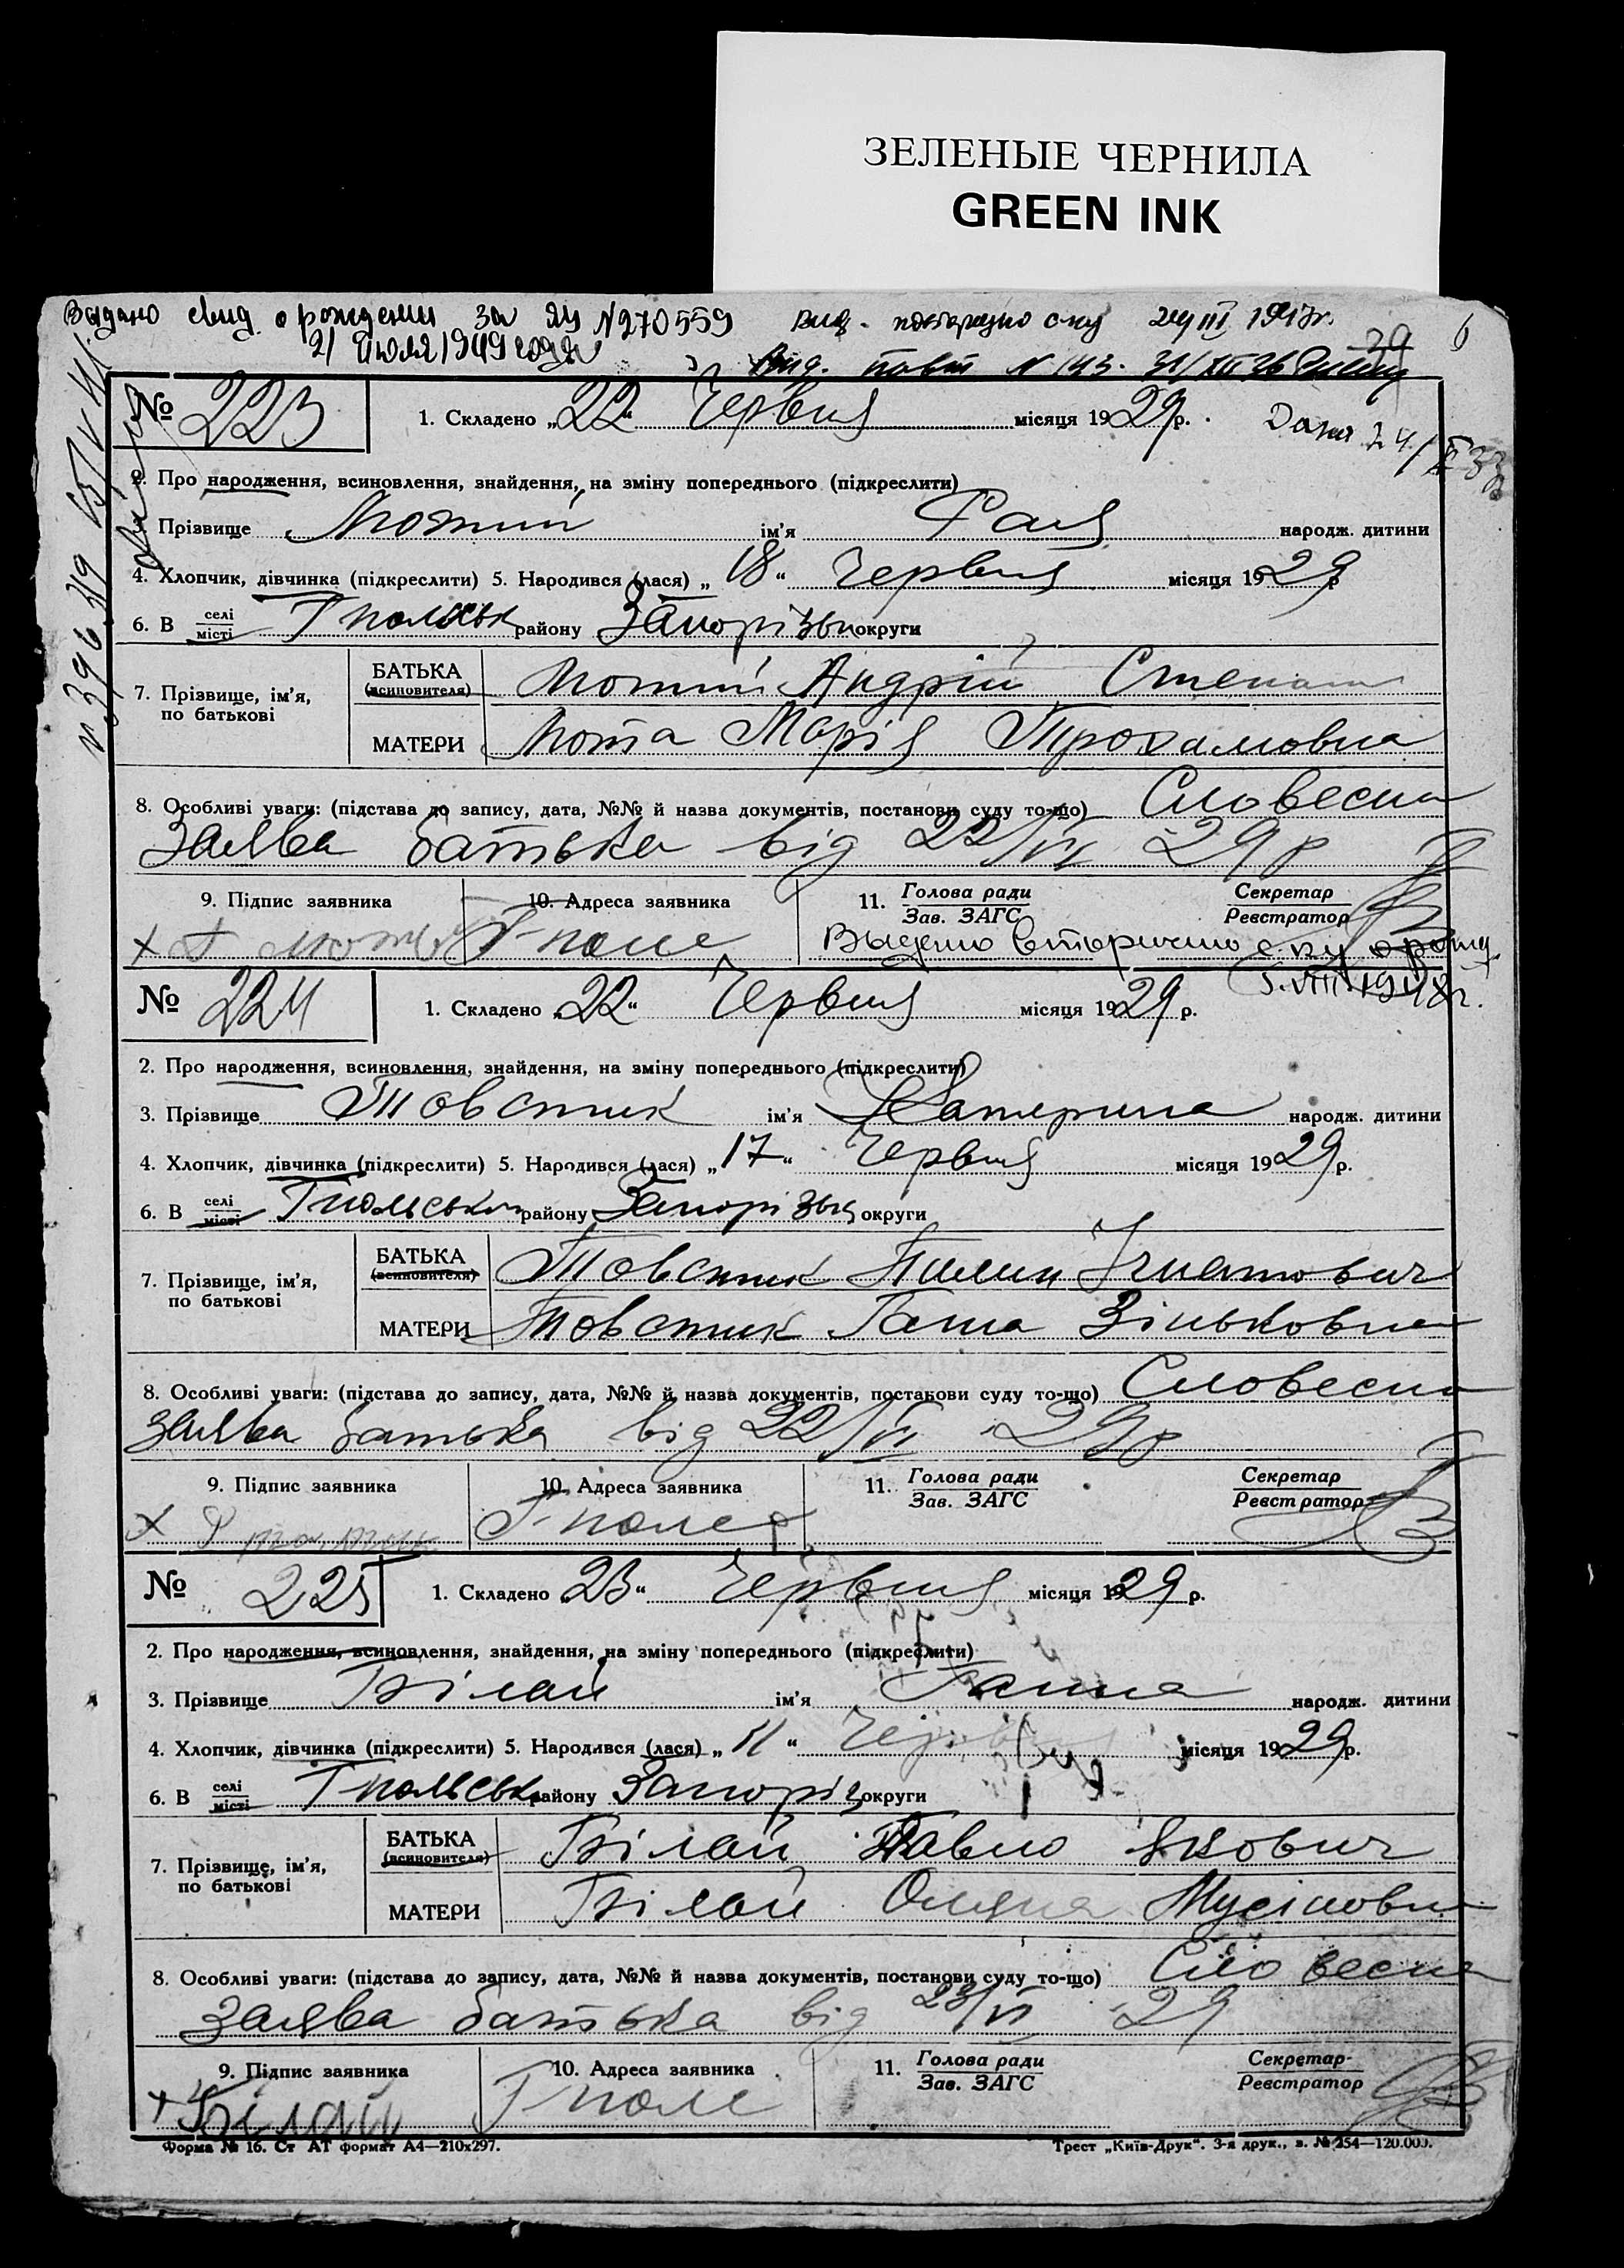 ЗЕЛЕНЫЕ ЧЕРНИЛА
GREEN INK
Выдано свид. о рождении за ЯЦ №270559
21 июля 1949 года
Выд. повторно с-ву 24/III 1947г.
Выд. повт N 143. 31/XII 36
29
№ 223 1. Складено „22“ Червня місяця 1929 р.
Дана 24/ 33
2. Про народження, всиновлення, знайдення, на зміну попереднього (підкреслити)
3. Прізвище Мотий ім'я Рая народж. дитини
4. Хлопчик, дівчинка (підкреслити) 5. Народився (лася) „18“ Червня місяця 1929 р
6. В селі місті Гпольськ району Запорізьк округи
7. Прізвище, ім'я, по батькові
БАТЬКА (всиновителя) Мотий Андрій Степан
МАТЕРИ Мота Марія Трохимовна
8. Особливі уваги: (підстава до запису, дата, №№ й назва документів, постанови суду то-що) Словесна
заява батька від 22/VI 29 р
9. Підпис заявника 10. Адреса заявника 11. Голова ради Зав. ЗАГС Секретар Реєстратор
Г-поле
Выдано вторично с-ву о рожд.
5.VIII.1948г.
№ 224 1. Складено „22“ Червня місяця 1929 р.
2. Про народження, всиновлення, знайдення, на зміну попереднього (підкреслити)
3. Прізвище Товстик ім'я Катерина народж. дитини
4. Хлопчик, дівчинка (підкреслити) 5. Народився (лася) „17“ Червня місяця 1929 р.
6. В селі місті Гпольськ району Запорізьк округи
7. Прізвище, ім'я, по батькові
БАТЬКА (всиновителя) Товстик Пилип Ігнатович
МАТЕРИ Товстик Ганна Зіньковна
8. Особливі уваги: (підстава до запису, дата, №№ й назва документів, постанови суду то-що) Словесна
заява батька від 22/VI 29р
9. Підпис заявника 10. Адреса заявника 11. Голова ради Зав. ЗАГС Секретар Реєстратор
Г-поле
№ 225 1. Складено „23“ Червня місяця 1929 р.
2. Про народження, всиновлення, знайдення, на зміну попереднього (підкреслити)
3. Прізвище Білай ім'я Ганна народж. дитини
4. Хлопчик, дівчинка (підкреслити) 5. Народився (лася) „11“ Червня місяця 1929 р.
6. В селі місті Гпольськ району Запоріз округи
7. Прізвище, ім'я, по батькові
БАТЬКА (всиновителя) Білай Павло Якович
МАТЕРИ Білай Оляна Мусіновна
8. Особливі уваги: (підстава до запису, дата, №№ й назва документів, постанови суду то-що) Словесна
заява батька від 23/VI 29
9. Підпис заявника 10. Адреса заявника 11. Голова ради Зав. ЗАГС Секретар Реєстратор
+ Білай Гполе
Форма № 16. Ст АТ формат А4—210х297. Трест „Київ-Друк“. 3-я друк., з. № 254—120.000.